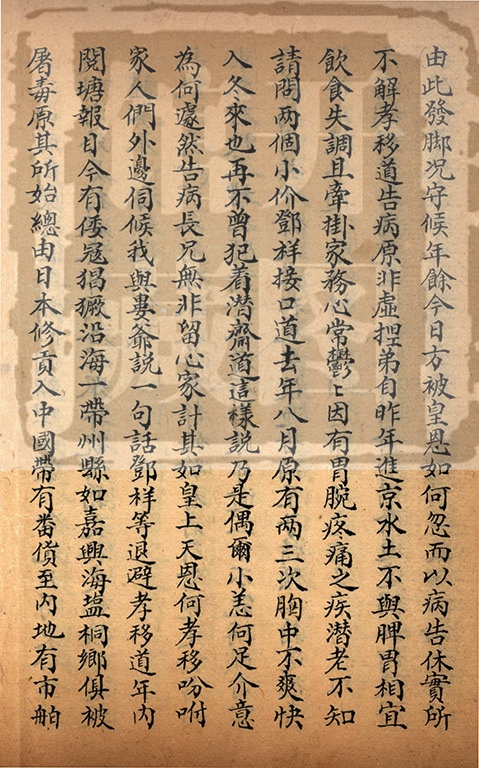 由此發脚况守候年餘今日方被皇恩如何忽而以病告休實所
不解孝移道告病原非虛捏弟自昨年進京水土不與脾胃相宜
飲食失調且牽掛家務心常鬱〻因有胃腕疼痛之疾潜老不知
請問两個小价鄧祥接口道去年八月原有两三次胸中不爽快
入冬來也再不曾犯着潜齋道這樣說乃是偶爾小恙何足介意
為何遽然告病長兄無非留心家計其如皇上天恩何孝移吩咐
家人們外邊伺候我與婁爺說一句話鄧祥等退避孝移道年内
閱塘報日今有倭冦猖獗沿海一帶州縣如嘉興海盐桐鄉俱被
屠毒原其所始總由日本修貢入中國帶有畨貨至内地有市舶